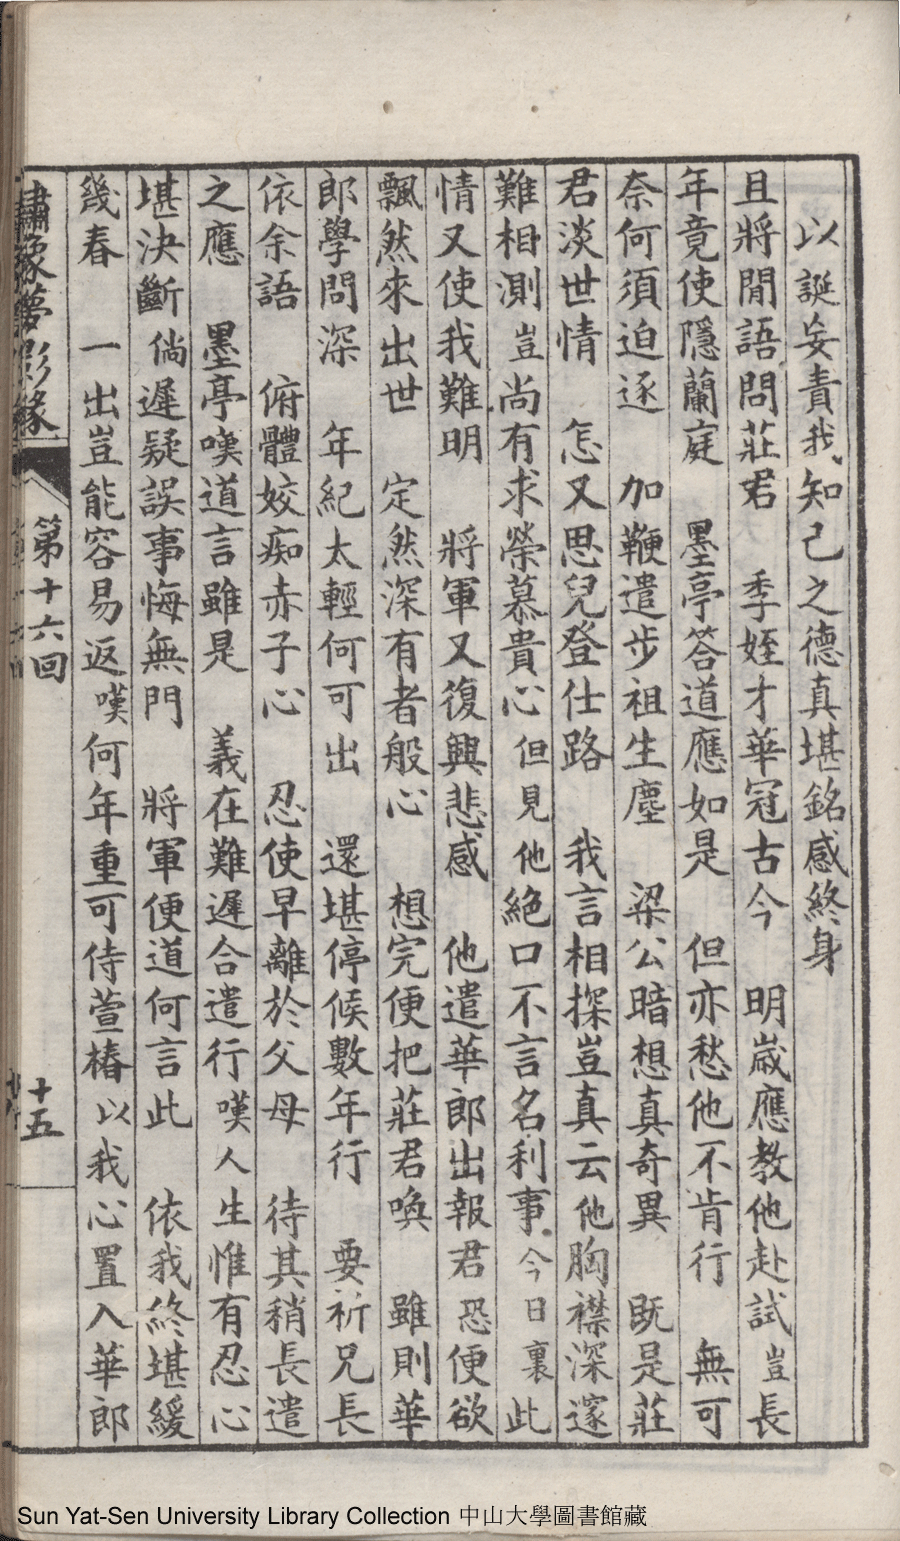 以誕妄責我知己之德真堪銘感終身
且將閒語問莊君　季姪才華冠古今　明歲應教他赴試豈長
年竟使隱蘭庭　墨亭答道應如是　但亦愁他不肯行　無可
奈何須迫逐　加鞭遣步祖生塵　梁公暗想真奇異　既是莊
君淡世情　怎又思兒登仕路　我言相探豈真云他胸襟深邃
難相測豈尚有求榮慕貴心但見他絕口不言名利事今日裏此
情又使我難明　將軍又復興悲感　他遣華郎出報君恐便欲
飄然來出世　定然深有者般心　想完便把莊君喚　雖則華
郎學問深　年紀太輕何可出　還堪停候數年行　要祈兄長
依余語　俯體姣痴赤子心　忍使早離於父母　待其稍長遣
之應　墨亭嘆道言雖是　義在難遲合遣行嘆人生惟有忍心
堪決斷倘遲疑誤事悔無門　將軍便道何言此　依我終堪緩
幾春　一出豈能容易返嘆何年重可侍萱椿以我心置入華郎
夢影緣
第十六回
十五
Sun Yat-Sen University Library Collection 中山大學圖書館藏